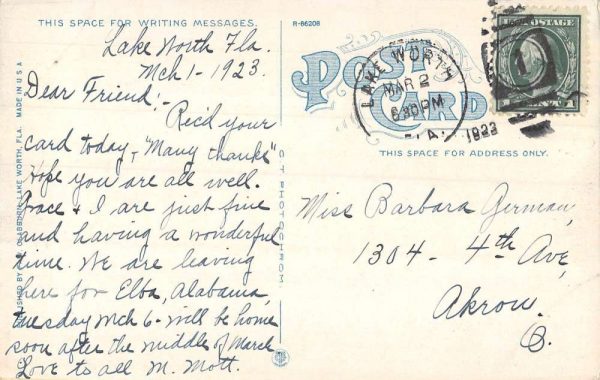 THIS SPACE FOR WRITING MESSAGES.
R-86208
Lake Worth Fla.
Mch 1-1923.
Dear Friend:-
Rec'd your
card today, "Many thanks"
Hope you are all well.
Grace & I are just fine
and having a wonderful
time. We are leaving
here for Elba, Alabama,
tuesday Mch 6- will be home
soon after the middle of March
Love to all M. Mott.
MADE IN U.S.A.
LAKE WORTH, FLA.
C T PHOTOCHROM
POST CARD
LAKE WORTH
MAR 2
6 30 PM
FLA.
1923
POSTAGE
1
THIS SPACE FOR ADDRESS ONLY.
Miss Barbara German,
1304 - 4th Ave,
Akron.
O.